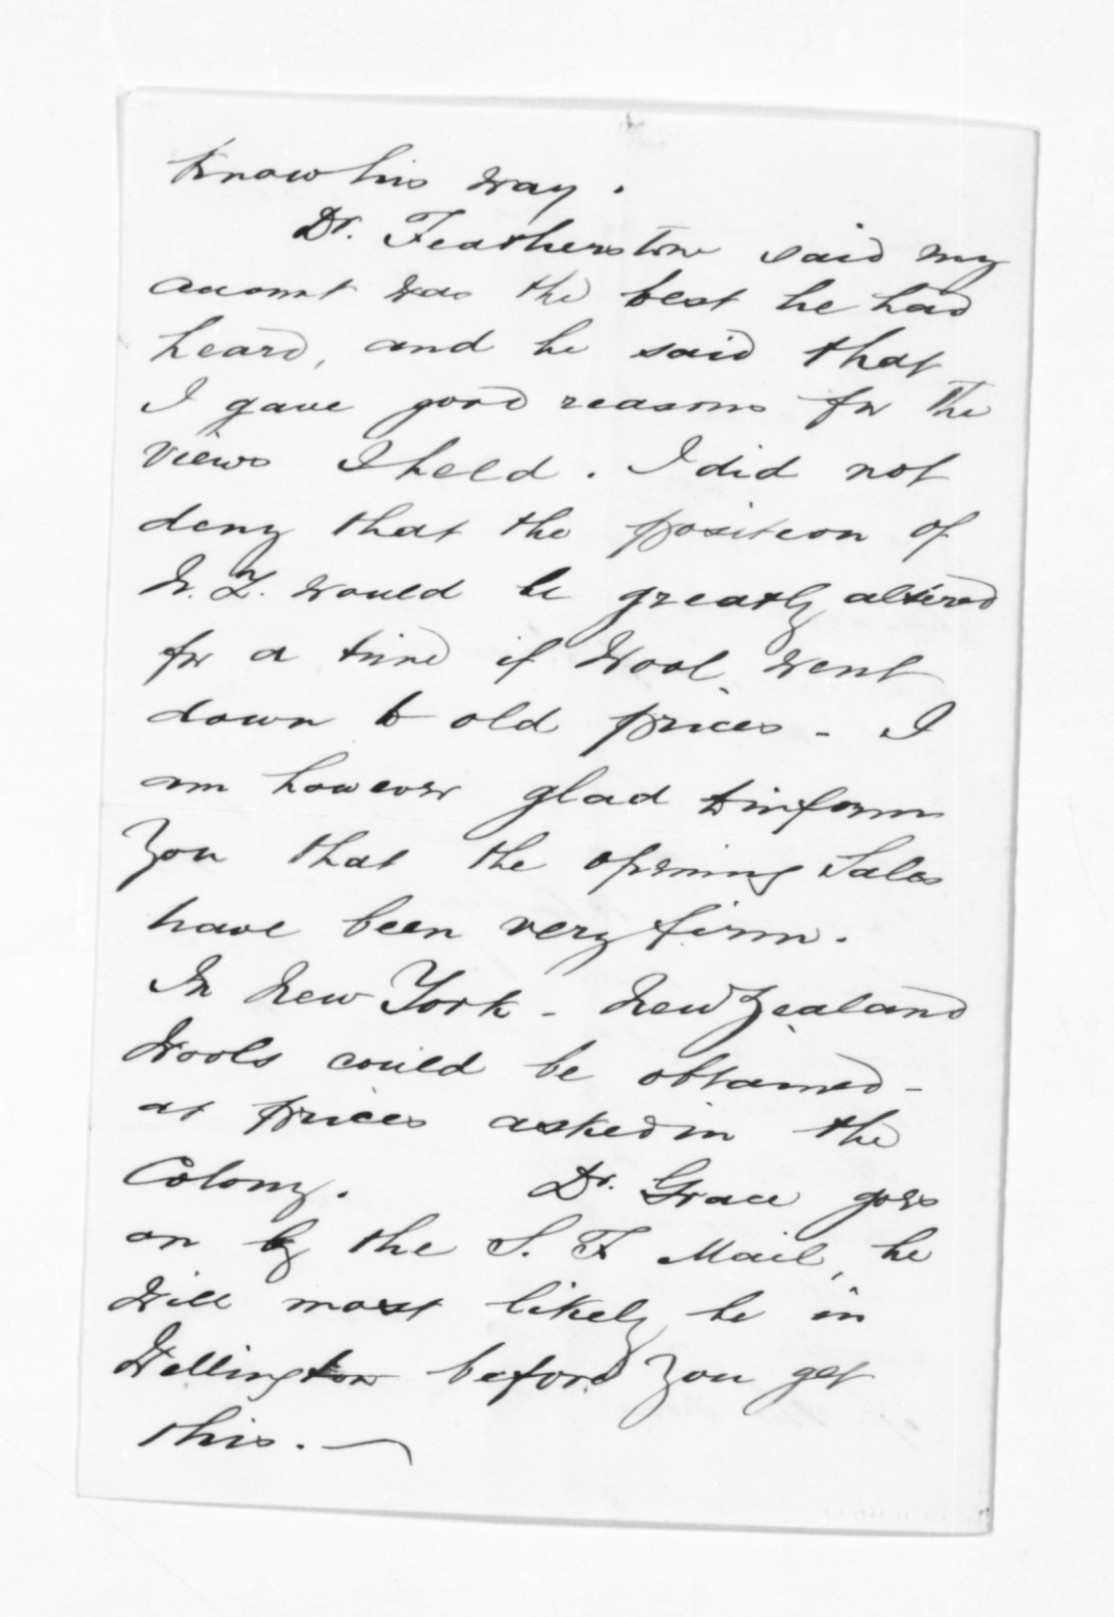 know his way.
Dr. Featherston said my
account was the best he had
heard, and he said that
I gave good reasons for the
views I held. I did not
deny that the position of
N.Z. would be greatly altered
for a time if Wool went
down to old prices - I
am however glad to inform
you that the opening Sales
have been very firm.
In New York - New Zealand
Wools could be obtained -
at prices asked in the
Colony. Dr. Grace goes
on by the S. F Mail, he
will most likely be in
Wellington before you get
this. -